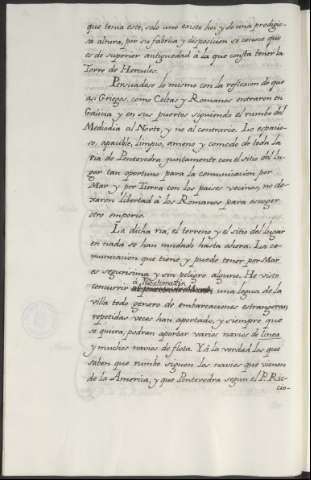 que tenia este, solo uno existe hoi y de una prodigio-
sa altura, por su fabrica y disposicion se conoce que
es de superior antiguedad à la que consta tener la
Torre de Hercules.
Persuadese lo mismo con la reflexion de que
asi Griegos, como Celtas y Romanos entraron en
Galicia y en sus puertos siguiendo el rumbo del
Mediodia al Norte, y no al contrario. Lo espacio-
so, apacible, limpio, ameno y comodo de toda la
ria de Pontevedra juntamente con el sitio del lu-
gar tan oportuno para la comunicacion por
Mar y por Tierra con los paises vecinos, no de-
xaron libertad à los Romanos para escoger
otro emporio.
La dicha ria, el terreno y el sitio del lugar
en nada se han mudado hasta ahora. La co-
municacion que tiene y puede tener por Mar
es segurisima y sin peligro alguno. He visto
concurrir una legua de la
villa todo genero de embarcaciones estrangeras,
repetidas veces han aportado, y siempre que
se quiera, podran aportar varios navios de linea
y muchos navios de flota. Y à la verdad los que
saben que rumbo siguen los navios que vienen
de la America, y que Pontevedra segun el P. Ric-
cio-